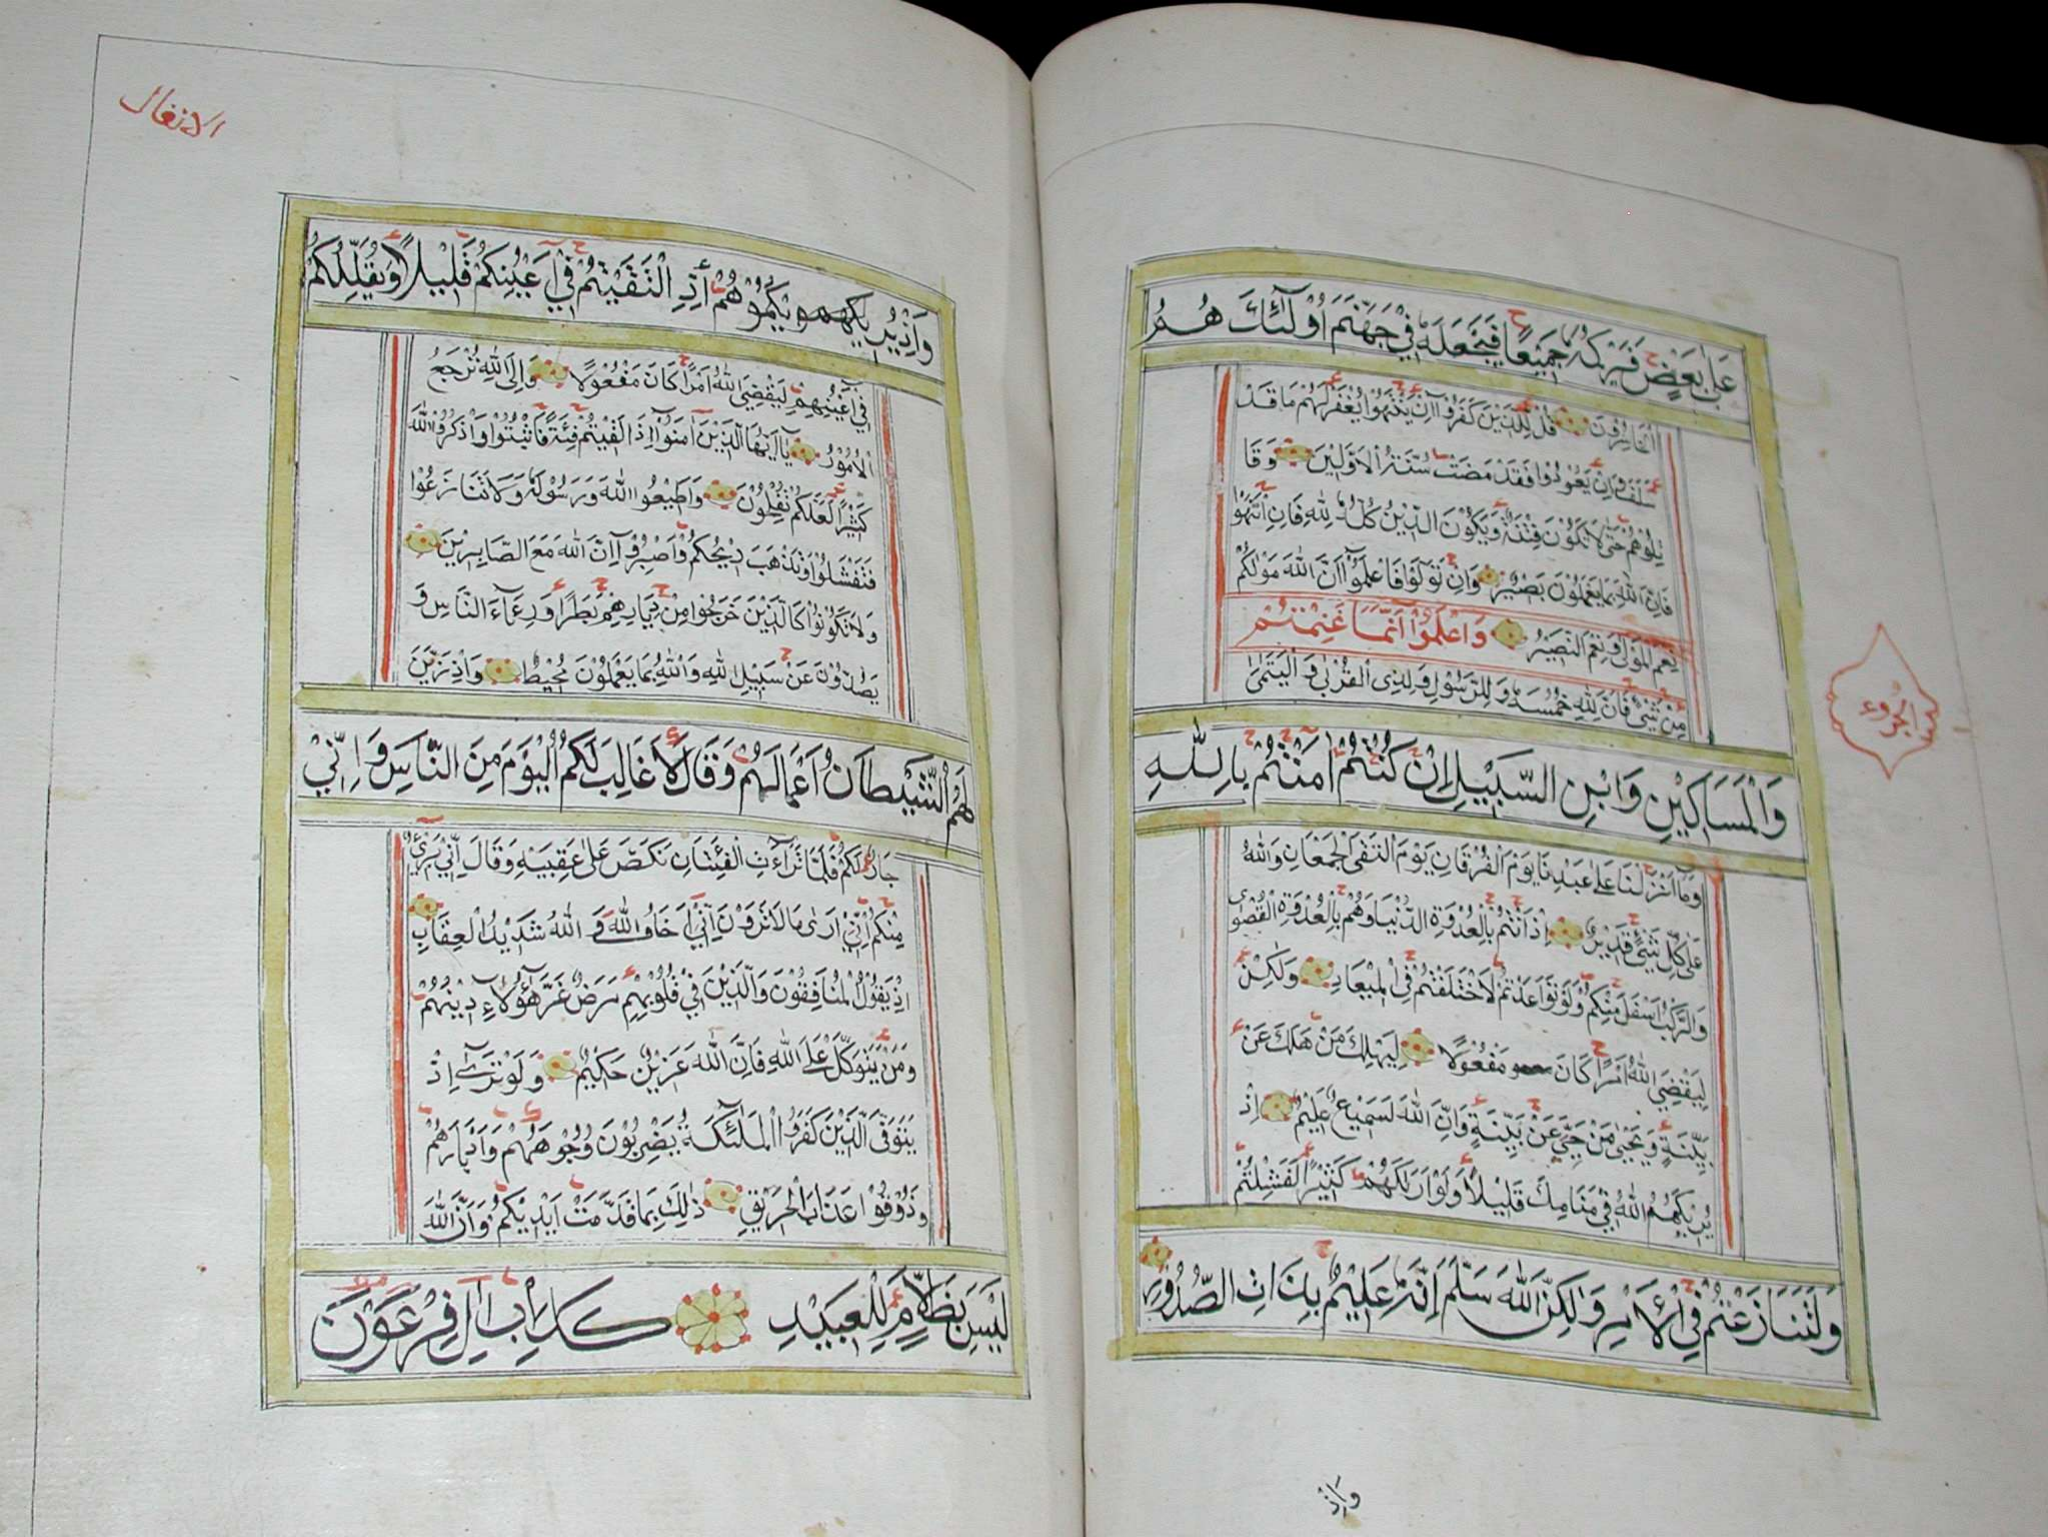 عَلىٰ بَعْضٍ فَيَرْكُمَهُ جَمِيْعًا فَيَجْعَلَهُ فِيْ جَهَنَّمَ اُولٰٓئِكَ هُمُ
الْخَاسِرُوْنَ قُلْ لِلَّذِيْنَ كَفَرُوْٓا اِنْ يَنْتَهُوْا يُغْفَرْ لَهُمْ مَا قَدْ
سَلَفَ وَاِنْ يَعُوْدُوْا فَقَدْ مَضَتْ سُنَّةُ الْاَوَّلِيْنَ وَقَا
تِلُوْهُمْ حَتّٰى لَا تَكُوْنَ فِتْنَةٌ وَيَكُوْنَ الدِّيْنُ كُلُّهُ لِلّٰهِ فَاِنِ انْتَهَوْا
فَاِنَّ اللّٰهَ بِمَا يَعْمَلُوْنَ بَصِيْرٌ وَاِنْ تَوَلَّوْا فَاعْلَمُوْٓا اَنَّ اللّٰهَ مَوْلٰكُمْ
نِعْمَ الْمَوْلٰى وَنِعْمَ النَّصِيْرُ وَاعْلَمُوْٓا اَنَّمَا غَنِمْتُمْ
مِنْ شَيْءٍ فَاَنَّ لِلّٰهِ خُمُسَهُ وَلِلرَّسُوْلِ وَلِذِي الْقُرْبٰى وَالْيَتَمٰىٰ
وَالْمَسَاكِيْنِ وَابْنِ السَّبِيْلِ اِنْ كُنْتُمْ اٰمَنْتُمْ بِاللّٰهِ
وَمَا اَنْزَلْنَا عَلىٰ عَبْدِنَا يَوْمَ الْفُرْقَانِ يَوْمَ الْتَقَى الْجَمْعَانِ وَاللّٰهُ
عَلىٰ كُلِّ شَيْءٍ قَدِيْرٌ اِذْ اَنْتُمْ بِالْعُدْوَةِ الدُّنْيَا وَهُمْ بِالْعُدْوَةِ الْقُصْوٰى
وَالرَّكْبُ اَسْفَلَ مِنْكُمْ وَلَوْ تَوَاعَدْتُمْ لَاخْتَلَفْتُمْ فِي الْمِيْعَادِ وَلٰكِنْ
لِيَقْضِيَ اللّٰهُ اَمْرًا كَانَ مَفْعُوْلًا لِيَهْلِكَ مَنْ هَلَكَ عَنْ
بَيِّنَةٍ وَيَحْيٰى مَنْ حَيَّ عَنْ بَيِّنَةٍ وَاِنَّ اللّٰهَ لَسَمِيْعٌ عَلِيْمٌ اِذْ
يُرِيْكَهُمُ اللّٰهُ فِيْ مَنَامِكَ قَلِيْلًا وَلَوْ اَرٰىكَهُمْ كَثِيْرًا لَفَشِلْتُمْ
وَلَتَنَازَعْتُمْ فِي الْاَمْرِ وَلٰكِنَّ اللّٰهَ سَلَّمَ اِنَّهُ عَلِيْمٌ بِذَاتِ الصُّدُوْرِ
وَاِذْ
الانفال
وَاِذْ يُرِيْكُمُوْهُمْ اِذِ الْتَقَيْتُمْ فِيْٓ اَعْيُنِكُمْ قَلِيْلًا وَيُقَلِّلُكُمْ
فِيْٓ اَعْيُنِهِمْ لِيَقْضِيَ اللّٰهُ اَمْرًا كَانَ مَفْعُوْلًا وَاِلَى اللّٰهِ تُرْجَعُ
الْاُمُوْرُ يَآ اَيُّهَا الَّذِيْنَ اٰمَنُوْٓا اِذَا لَقِيْتُمْ فِئَةً فَاثْبُتُوْا وَاذْكُرُوا اللّٰهَ
كَثِيْرًا لَعَلَّكُمْ تُفْلِحُوْنَ وَاَطِيْعُوا اللّٰهَ وَرَسُوْلَهُ وَلَا تَنَازَعُوْا
فَتَفْشَلُوْا وَتَذْهَبَ رِيْحُكُمْ وَاصْبِرُوْٓا اِنَّ اللّٰهَ مَعَ الصَّابِرِيْنَ
وَلَا تَكُوْنُوْا كَالَّذِيْنَ خَرَجُوْا مِنْ دِيَارِهِمْ بَطَرًا وَرِئَآءَ النَّاسِ وَ
يَصُدُّوْنَ عَنْ سَبِيْلِ اللّٰهِ وَاللّٰهُ بِمَا يَعْمَلُوْنَ مُحِيْطٌ وَاِذْ زَيَّنَ
لَهُمُ الشَّيْطَانُ اَعْمَالَهُمْ وَقَالَ لَا غَالِبَ لَكُمُ الْيَوْمَ مِنَ النَّاسِ وَاِنِّيْ
جَارٌ لَكُمْ فَلَمَّا تَرَآءَتِ الْفِئَتَانِ نَكَصَ عَلىٰ عَقِبَيْهِ وَقَالَ اِنِّيْ بَرِيْٓءٌ
مِنْكُمْ اِنِّيْٓ اَرٰى مَا لَا تَرَوْنَ اِنِّيْٓ اَخَافُ اللّٰهَ وَاللّٰهُ شَدِيْدُ الْعِقَابِ
اِذْ يَقُوْلُ الْمُنَافِقُوْنَ وَالَّذِيْنَ فِيْ قُلُوْبِهِمْ مَرَضٌ غَرَّ هٰٓؤُلَآءِ دِيْنُهُمْ
وَمَنْ يَتَوَكَّلْ عَلَى اللّٰهِ فَاِنَّ اللّٰهَ عَزِيْزٌ حَكِيْمٌ وَلَوْ تَرٰٓى اِذْ
يَتَوَفَّى الَّذِيْنَ كَفَرُوا الْمَلٰٓئِكَةُ يَضْرِبُوْنَ وُجُوْهَهُمْ وَاَدْبَارَهُمْ
وَذُوْقُوْا عَذَابَ الْحَرِيْقِ ذٰلِكَ بِمَا قَدَّمَتْ اَيْدِيْكُمْ وَاَنَّ اللّٰهَ
لَيْسَ بِظَلَّامٍ لِلْعَبِيْدِ كَدَاْبِ اٰلِ فِرْعَوْنَ